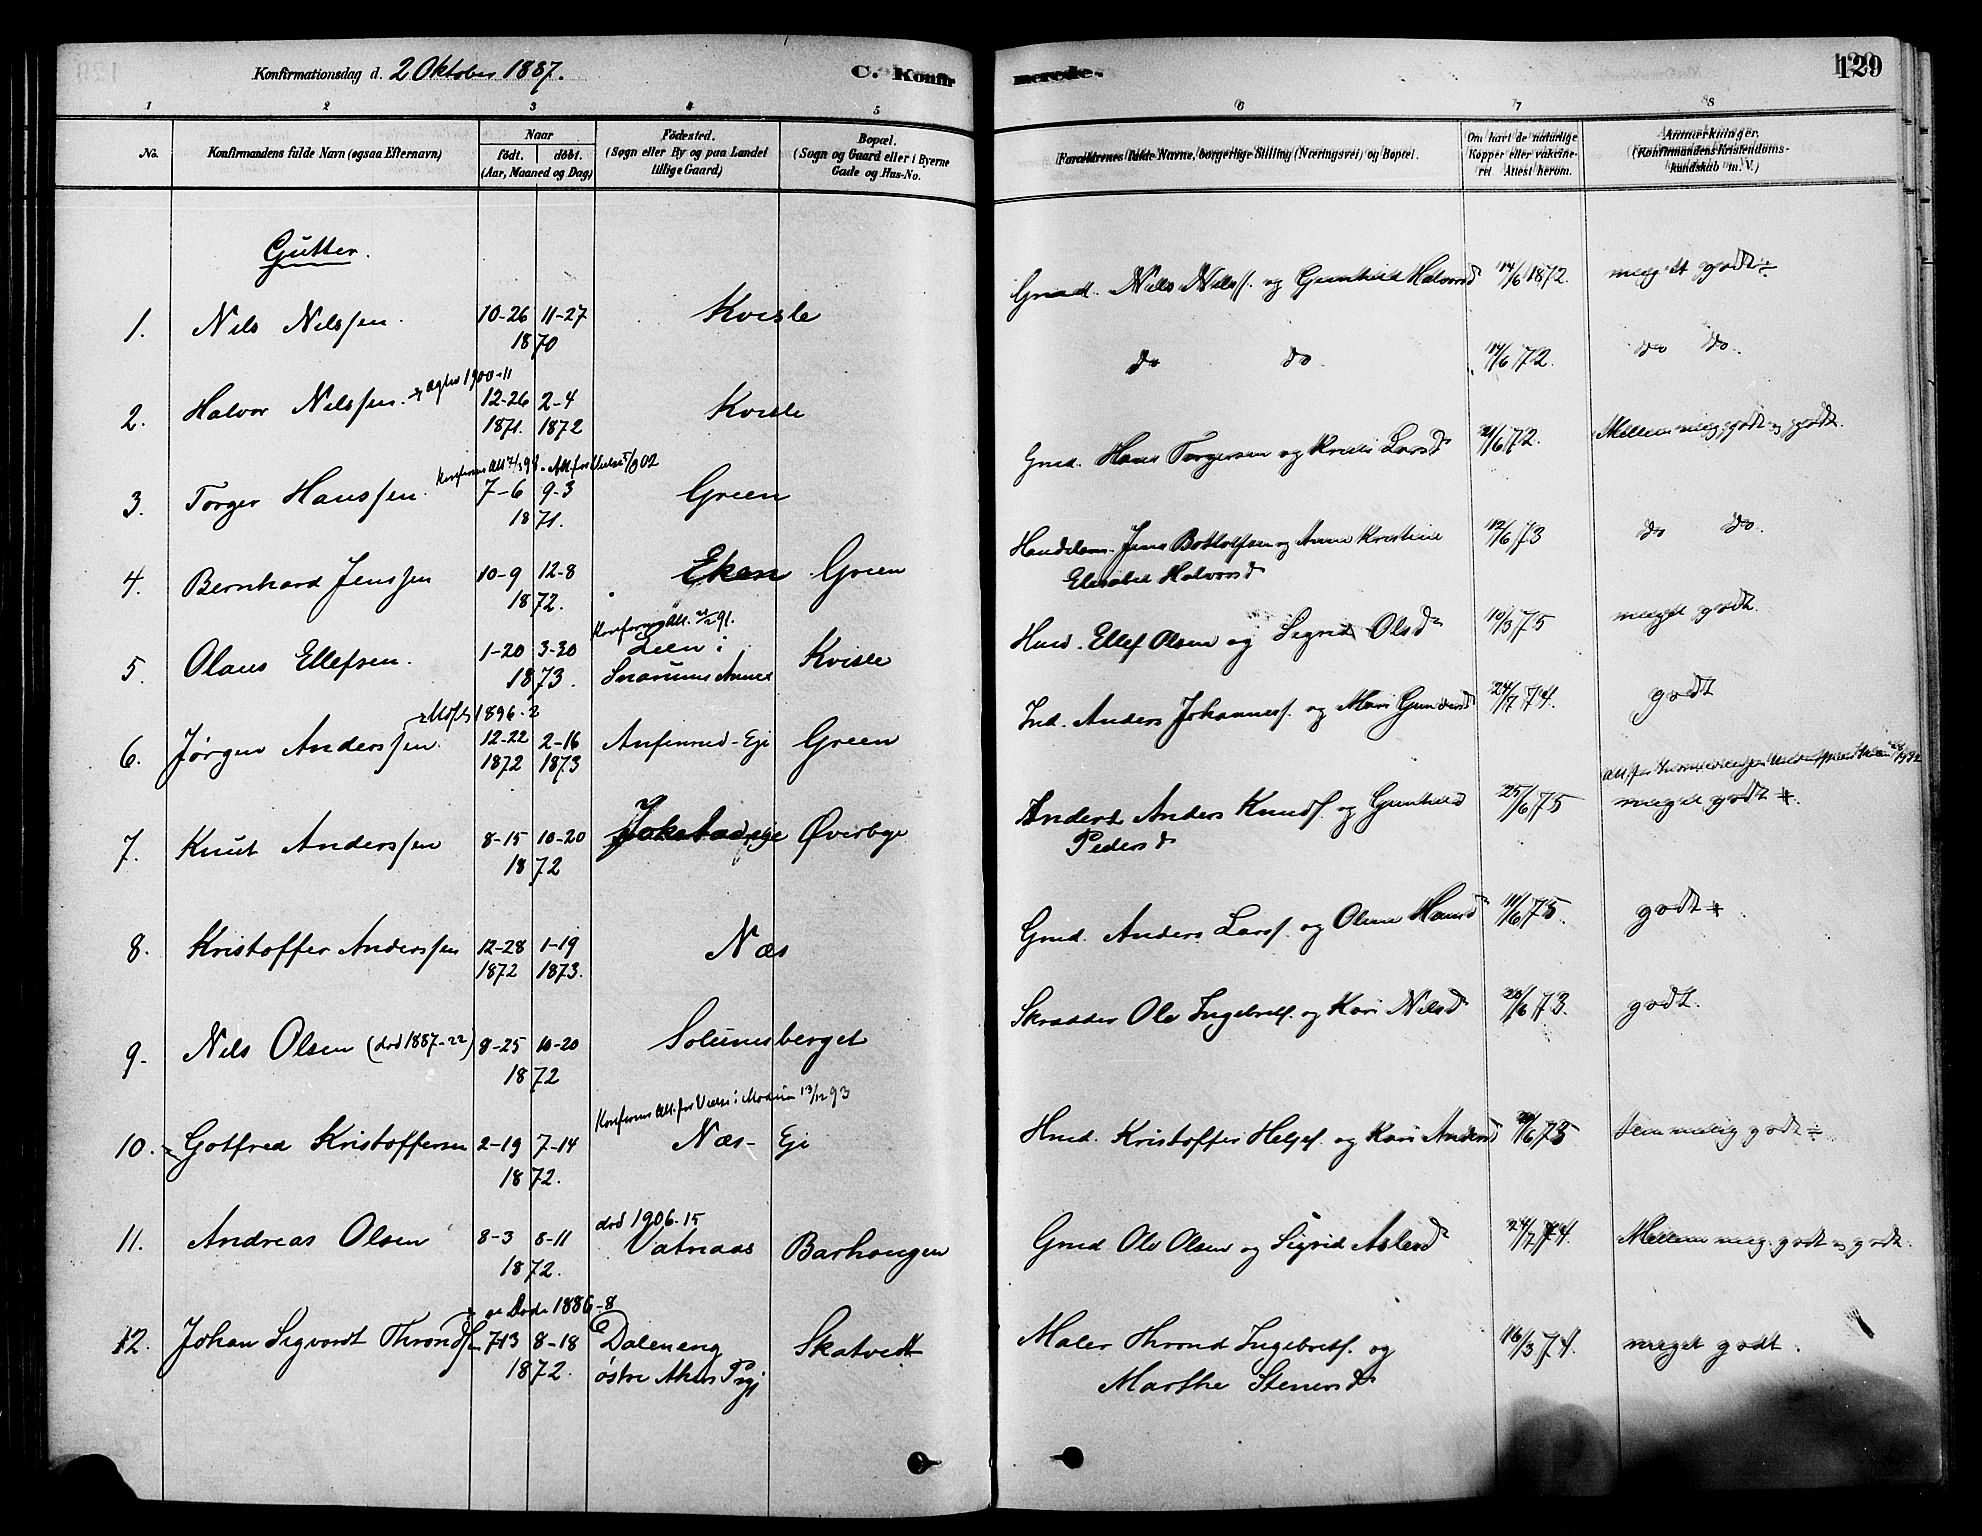 Konfirmationsdag d. 2 Oktober 1887.
C. Konfirmerede.
129
1 2 3 4 5 6 7 8
No.
Konfirmandens fulde Navn (ogsaa Efternavn)
Naar
født. døbt.
(Aar, Maaned og Dag)
Fødested.
(Sogn eller By og paa Landet
tillige Gaard)
Bopæl.
(Sogn og Gaard eller i Byerne
Gade og Hus-No.
Forældrenes fulde Navne, borgerlige Stilling (Næringsvei) og Bopæl.
Om havt de naturlige
Kopper eller vakcine-
ret. Attest herom.
Anmerkninger.
(Konfirmandens Kristendoms-
kundskab m. V.)
Gutter.
1. Nils Nilssen. 10-26 11-27 Kvisle Gmd. Nils Nilss. og Gunhild Halvorsd 14/6 1872. meget godt
1870
2. Halvor Nilssen. 1900-11 12-26 2-4 Kvisle do do 14/6 72. do do.
1871. 1872
3. Torger Hanssen. 7-6 9-3 Green Gmd. Hans Torgersen og Larsd 21/6 72. Mellem meg. godt og godt.
1871.
4. Bernhard Jenssen 10-9 12-8 Eken Green Jens Bottolfsen og Anne Kristine 12/6 73 do do.
1872. Elisabet Halvorsd
Konfirm. Att. 91.
5. Olaus Ellefsen. 1-20 3-30 Lien i Kvisle Hmd. Ellef Olsen og Sigrid Olsd 10/3 75 meget godt.
1873. Snarums Annex
6. Jørgen Anderssen. 1896-2 12-22 2-16 Anfinrud-Eje Green Ind. Anders Johanness. og Mari Gundersd 24/7 74. godt
1872 1873
7. Knut Anderssen 8-15 10-20 Øverbye Anders Knuds. og Gunhild 25/6 75 meget godt
1872 Pedersd
8. Kristoffer Anderssen 12-28 1-19 Næs Gmd. Anders Larss. og Olene Hansd 11/6 75. godt
1872 1873.
9. Nils Olsen (død 1887-22) 8-25 10-20 Solumsberget Skrædder Ole Ingebrets. og Kari Nilsd 20/6 73. godt.
1872
Konfirm. Att. for Vielse i Modum 13/12 93
10. Gotfred Kristoffersen 2-19 7-14 Næs- Eje Hmd. Kristoffer Helges. og Kari Andersd /6 73 temmelig godt
1872.
død 1906-15
11. Andreas Olsen 8-3 8-11 Vatnaas Barhaugen Gmd Ole Olsen og Sigrid Aslesd 24/7 74. Mellem meg. godt og godt.
1872.
Døde 1886-8
12. Johan Sigvardt Thronds. 7-13 8-18 Daleneng Skatvedt Maler Thrond Ingebrets. og 16/3 74. meget godt.
1872. østre Akers Prgj Marthe Stenersd